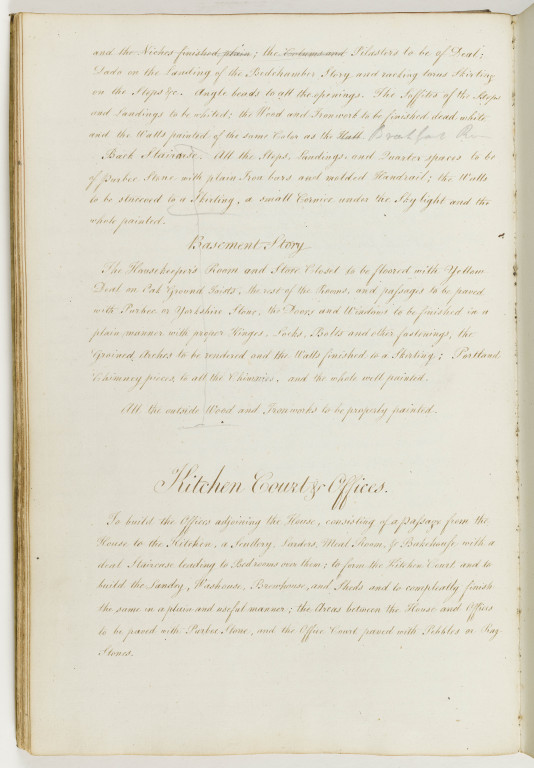 and the Niches finished plain; the Columns and Pilasters to be of Deal;
Dado on the Landing of the Bedchamber Story, and raking torus Skirting
on the Steps &c. Angle beads to all the openings. The Soffites of the Steps
and Landings to be whited; the Wood and Ironwork to be finished dead white
and the Walls painted of the same Color as the Hall.
Back Stairaise. All the Steps, Landings and Quarter spaces to be
of Purbec Stone with plain Iron bars and molded Handrail; the Walls
to be stuccoed to a Skirting, a small Cornice under the Sky light and the
whole painted.
Basement Story
The Housekeeper's Room and Store Closet to be floored with Yellow
Deal on Oak Ground Joists, the rest of the Rooms, and passages to be paved
with Purbec or Yorkshire Stone, the Doors and Windows to be finished in a
plain manner with proper Hinges, Locks, Bolts and other fastenings, the
Groined Arches to be rendered and the Walls finished to a Skirting; Portland
Chimney pieces to all the Chimnies, and the whole well painted.
All the outside Wood and Ironworks to be properly painted.
Kitchen Court & Offices.
To build the Offices adjoining the House, consisting of a passage from the
House to the Kitchen, a Scullery, Larders, Meal Room, & Bakehouse with a
deal Staircase leading to Bedrooms over them; to form the Kitchen Court and to
build the Landry, Washouse, Brewhouse, and Sheds and to compleatly finish
the same in a plain and usefull manner; the Areas between the House and Offices
to be paved with Purbec Stone, and the Office Court paved with Pebbles or Rag
Stones.